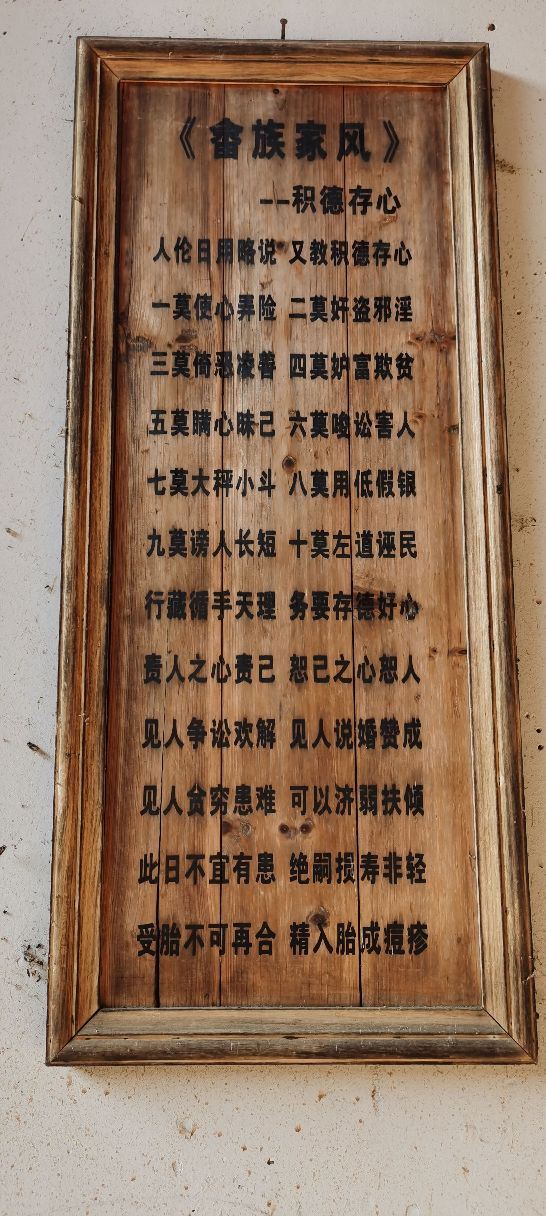 《畲族家风》
--积德存心
人伦日用略说 又教积德存心
一莫使心弄险 二莫奸盗邪淫
三莫倚恶凌善 四莫妒富欺贫
五莫瞒心昧己 六莫唆讼害人
七莫大秤小斗 八莫用低假银
九莫谤人长短 十莫左道诬民
行藏循手天理 务要存德好心
责人之心责己 恕己之心恕人
见人争讼欢解 见人说婚赞成
见人贫穷患难 可以济弱扶倾
此日不宜有患 绝嗣损寿非轻
受胎不可再合 精入胎成痘疹